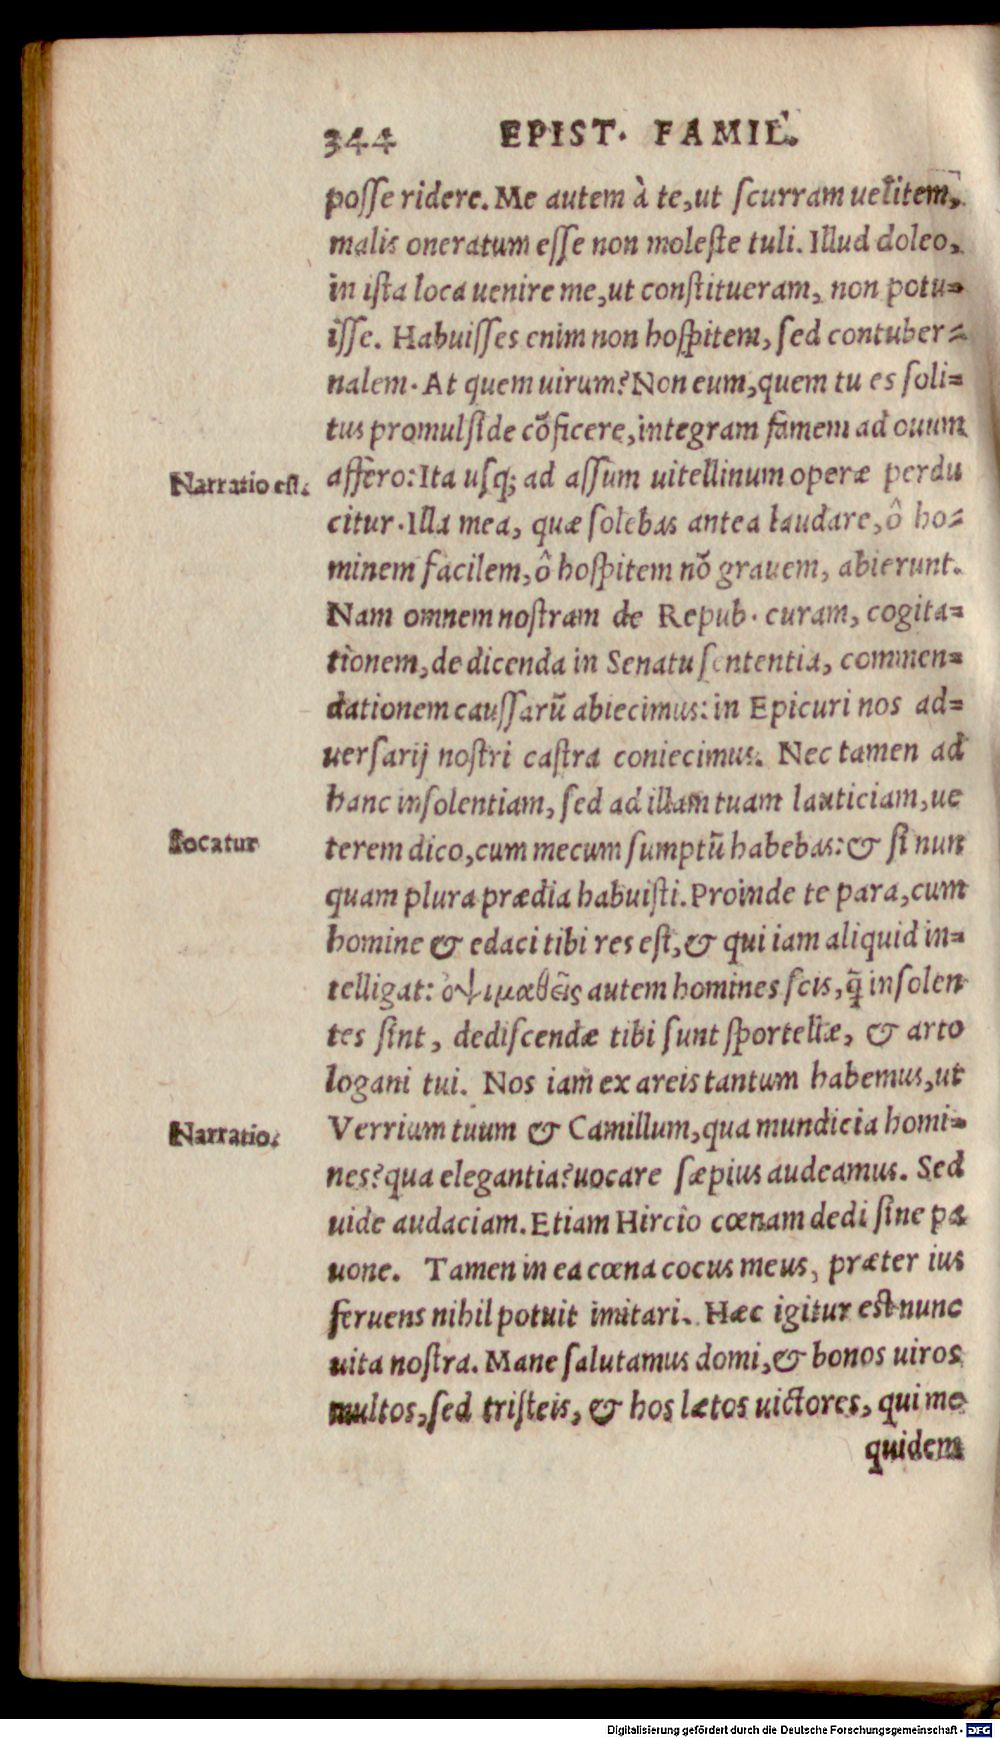 344 EPIST. FAMIL.
posse ridere. Me autem à te, ut scurram uelitem,
malis oneratum esse non moleste tuli. Illud doleo,
in ista loca uenire me, ut constitueram, non potu=
isse. Habuisses enim non hospitem, sed contuber=
nalem. At quem uirum? Non eum, quem tu es soli=
tus promulside cõficere, integram famem ad ouum
Narratio est.
affero: Ita usq; ad assum uitellinum operæ perdu
citur. Illa mea, quæ solebas antea laudare, ô ho=
minem facilem, ô hospitem nõ grauem, abierunt.
Nam omnem nostram de Repub. curam, cogita=
tionem, de dicenda in Senatu sententia, commen=
dationem caussarũ abiecimus: in Epicuri nos ad=
uersarij nostri castra coniecimus. Nec tamen ad
hanc insolentiam, sed ad illam tuam lauticiam, ue
Iocatur
terem dico, cum mecum sumptũ habebas: & si nun
quam plura prædia habuisti. Proinde te para, cum
homine & edaci tibi res est, & qui iam aliquid in=
telligat: ὀψιμαθεῖς autem homines scis, q̃ insolen
tes sint, dediscendæ tibi sunt sportellæ, & arto
logani tui. Nos iam ex areis tantum habemus, ut
Narratio.
Verrium tuum & Camillum, qua mundicia homi=
nes? qua elegantia? uocare sæpius audeamus. Sed
uide audaciam. Etiam Hircio cœnam dedi sine pa
uone. Tamen in ea cœna cocus meus, præter ius
feruens nihil potuit imitari. Hæc igitur est nunc
uita nostra. Mane salutamus domi, & bonos uiros
multos, sed tristeis, & hos lætos uictores, qui me
quidem
Digitalisierung gefördert durch die Deutsche Forschungsgemeinschaft - DFG